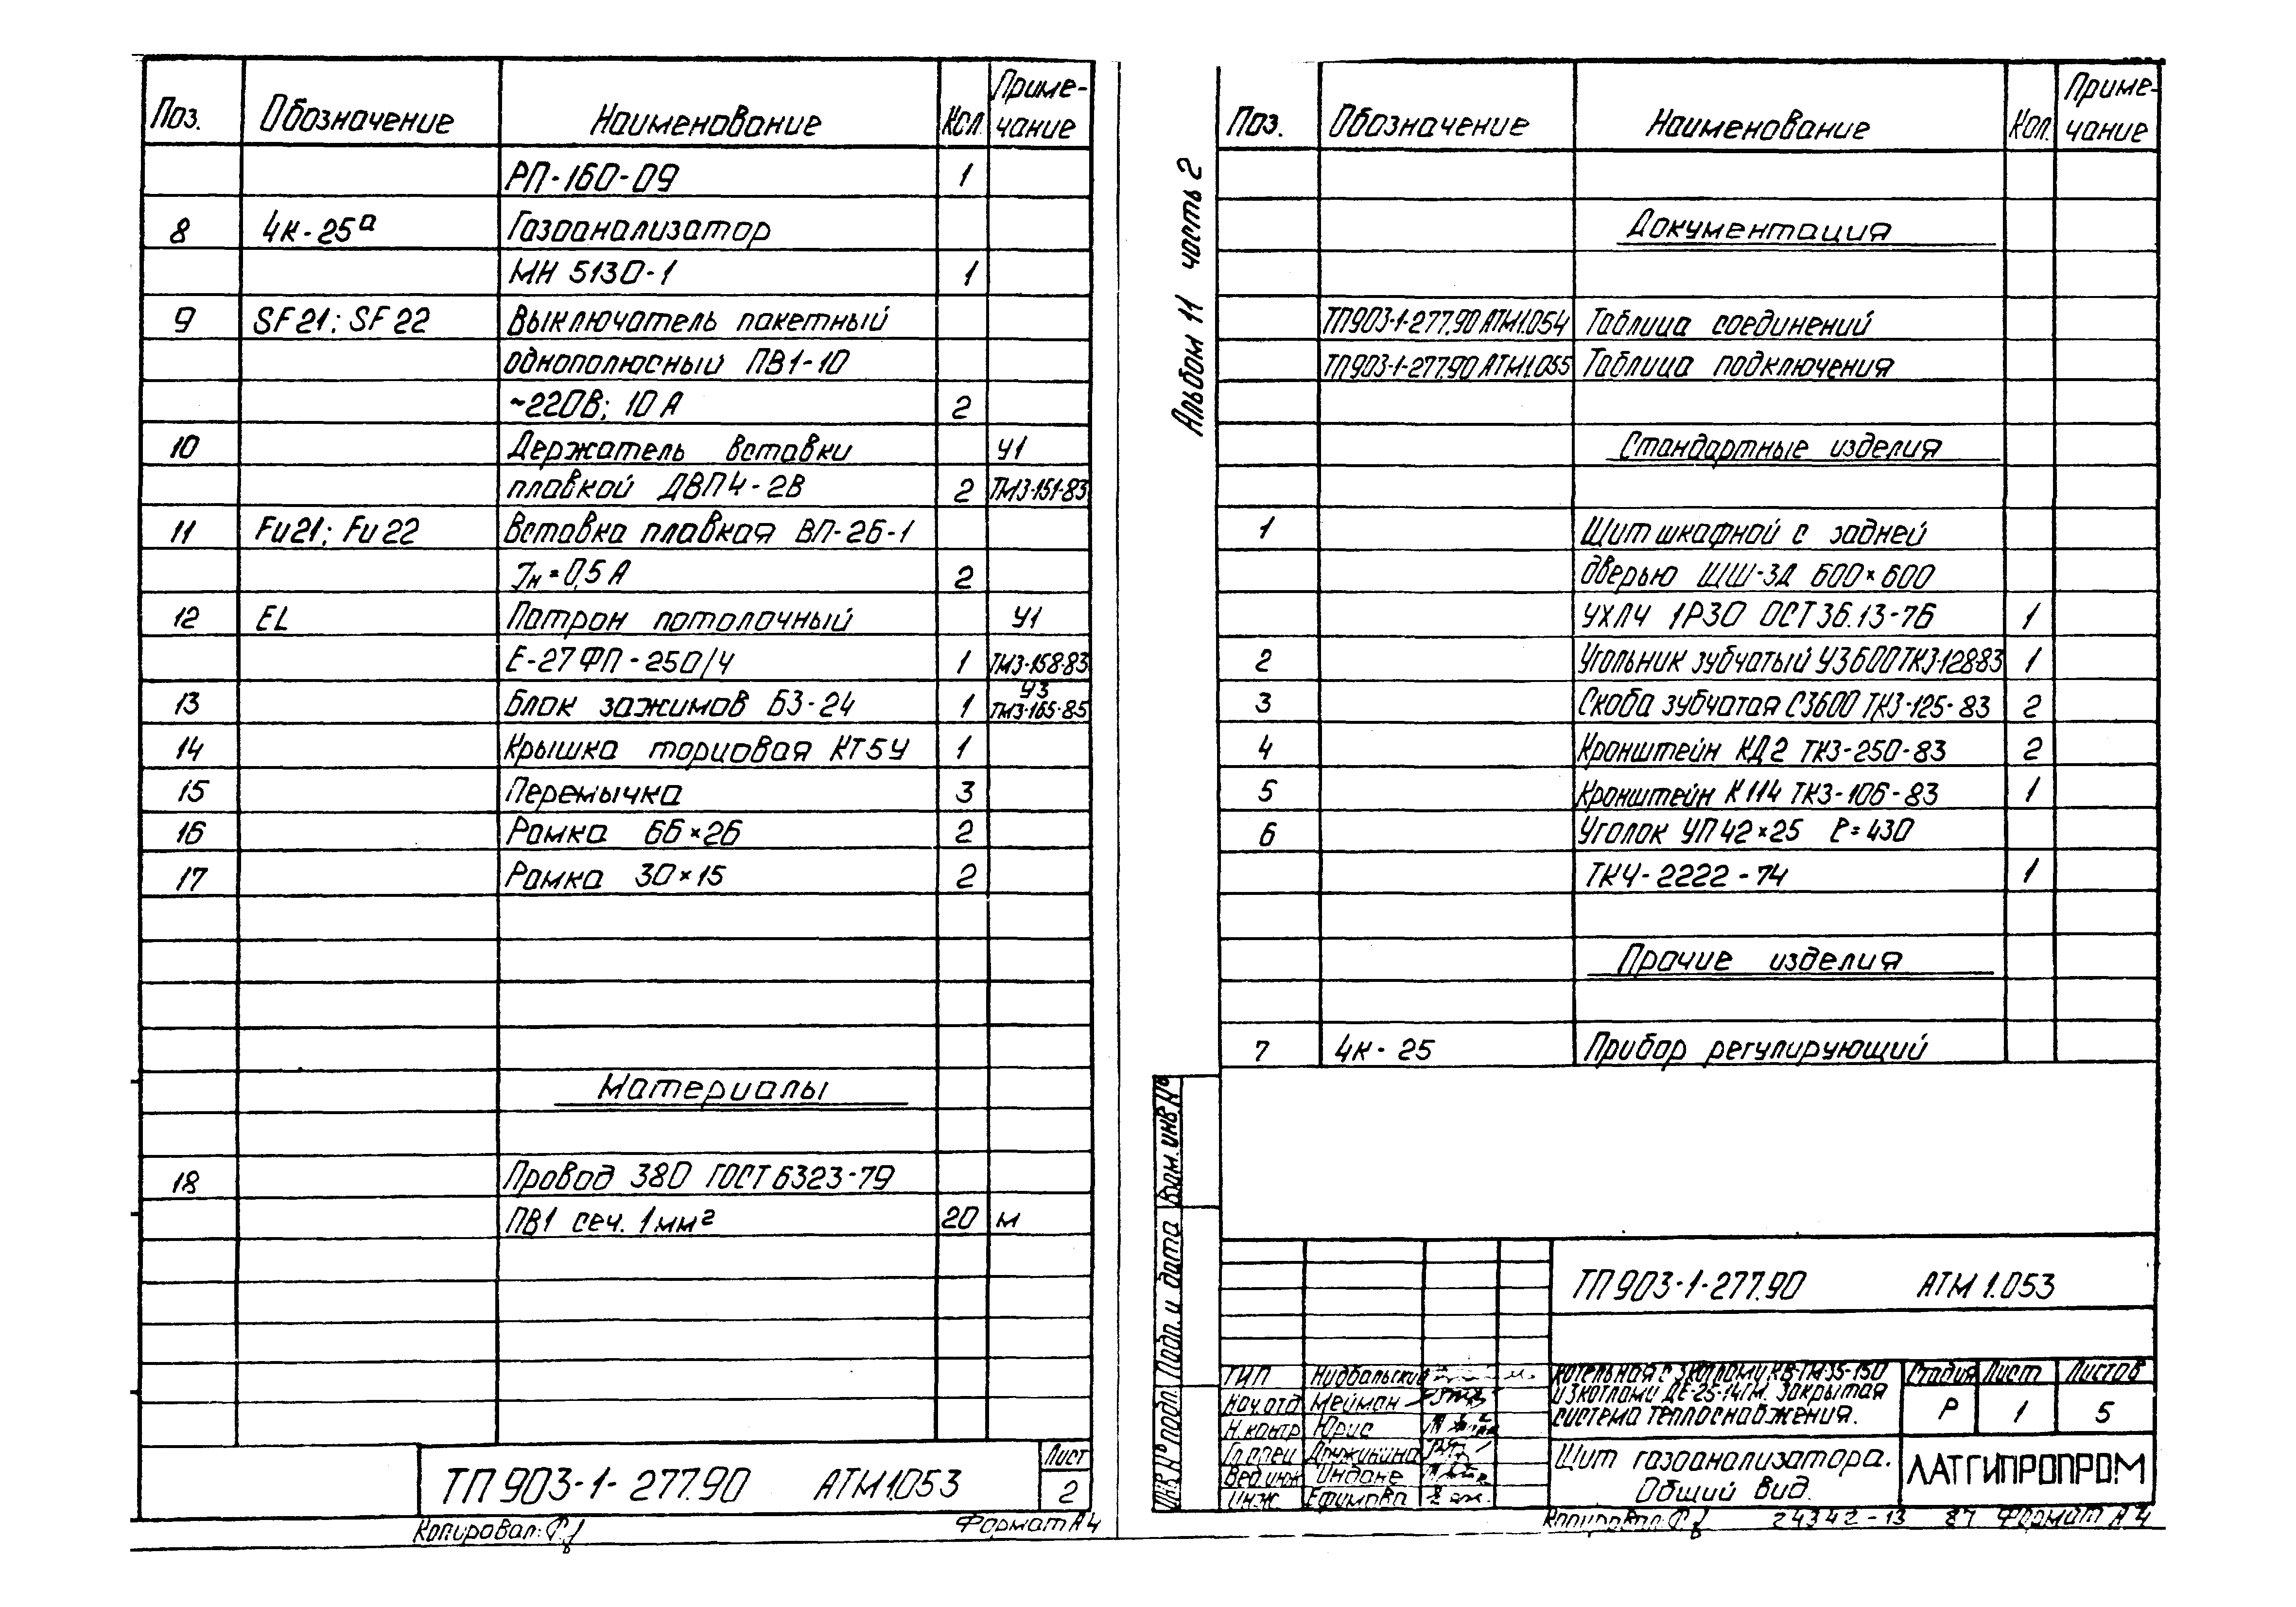 Поз. Обозначение Наименование Кол. Приме-
чание
РП-160-09 1
8 4к-25а Газоанализатор
МН 5130-1 1
9 SF21; SF22 Выключатель пакетный
однополюсный ПВ1-10
~220В; 10А 2
10 Держатель вставки У1
плавкой ДВП4-2В 2 ТМ3-151-83
11 Fu21; Fu22 Вставка плавкая ВП-2Б-1
Iн=0,5А 2
12 EL Патрон потолочный У1
Е-27ФП-250/4 1 ТМ3-158-83
У3
13 Блок зажимов БЗ-24 1 ТМ3-165-85
14 Крышка торцовая КТ5У 1
15 Перемычка 3
16 Рамка 66×26 2
17 Рамка 30×15 2
Материалы
18 Провод 380 ГОСТ 6323-79
ПВ1 сеч. 1мм² 20 м
ТП903-1-277.90 АТМ1.053
Лист
2
Копировал:
Формат А4
Альбом 11 часть 2
Поз. Обозначение Наименование Кол. Приме-
чание
Документация
ТП903-1-277.90 АТМ1.054 Таблица соединений
ТП903-1-277.90 АТМ1.055 Таблица подключения
Стандартные изделия
1 Щит шкафной с задней
дверью ЩШ-ЗД 600×600
УХЛ4 1Р30 ОСТ 36.13-76 1
2 Угольник зубчатый УЗ600 ТК3-128-83 1
3 Скоба зубчатая СЗ600 ТК3-125-83 2
4 Кронштейн КД2 ТК3-250-83 2
5 Кронштейн К114 ТК3-106-83 1
6 Уголок УП42×25 ℓ=430
ТК4-2222-74 1
Прочие изделия
7 4к-25 Прибор регулирующий
Взам. инв. №
Подп. и дата
Инв. № подл.
ТП903-1-277.90 АТМ1.053
ГИП Нидбальский
Нач.отд Мейман
Н.контр Юрис
Гл.спец Дружинина
Вед.инж Индане
Инж. Ефимова
Котельная с 3 котлами КВ-ТМ35-150
и 3 котлами ДЕ-25-14ГМ. Закрытая
система теплоснабжения.
Стадия Лист Листов
Р 1 5
Щит газоанализатора.
Общий вид.
ЛАТГИПРОПРОМ
Копировал:
24342-13 87 Формат А4